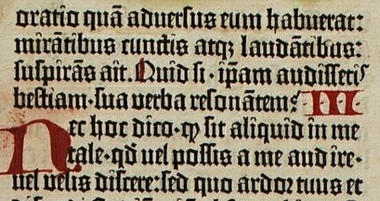 oratio quā aduersus eum habuerat:
mirātibus cunctis atqꝫ laudātibus:
suspirās ait. Quid si · ip̄am audisseti
bestiam · sua verba resonātem: III
Nec hoc dico · ꝙ sit aliquid in me
tale · qđ uel possis a me audire ·
uel velis discere: sed quo ardor tuus et